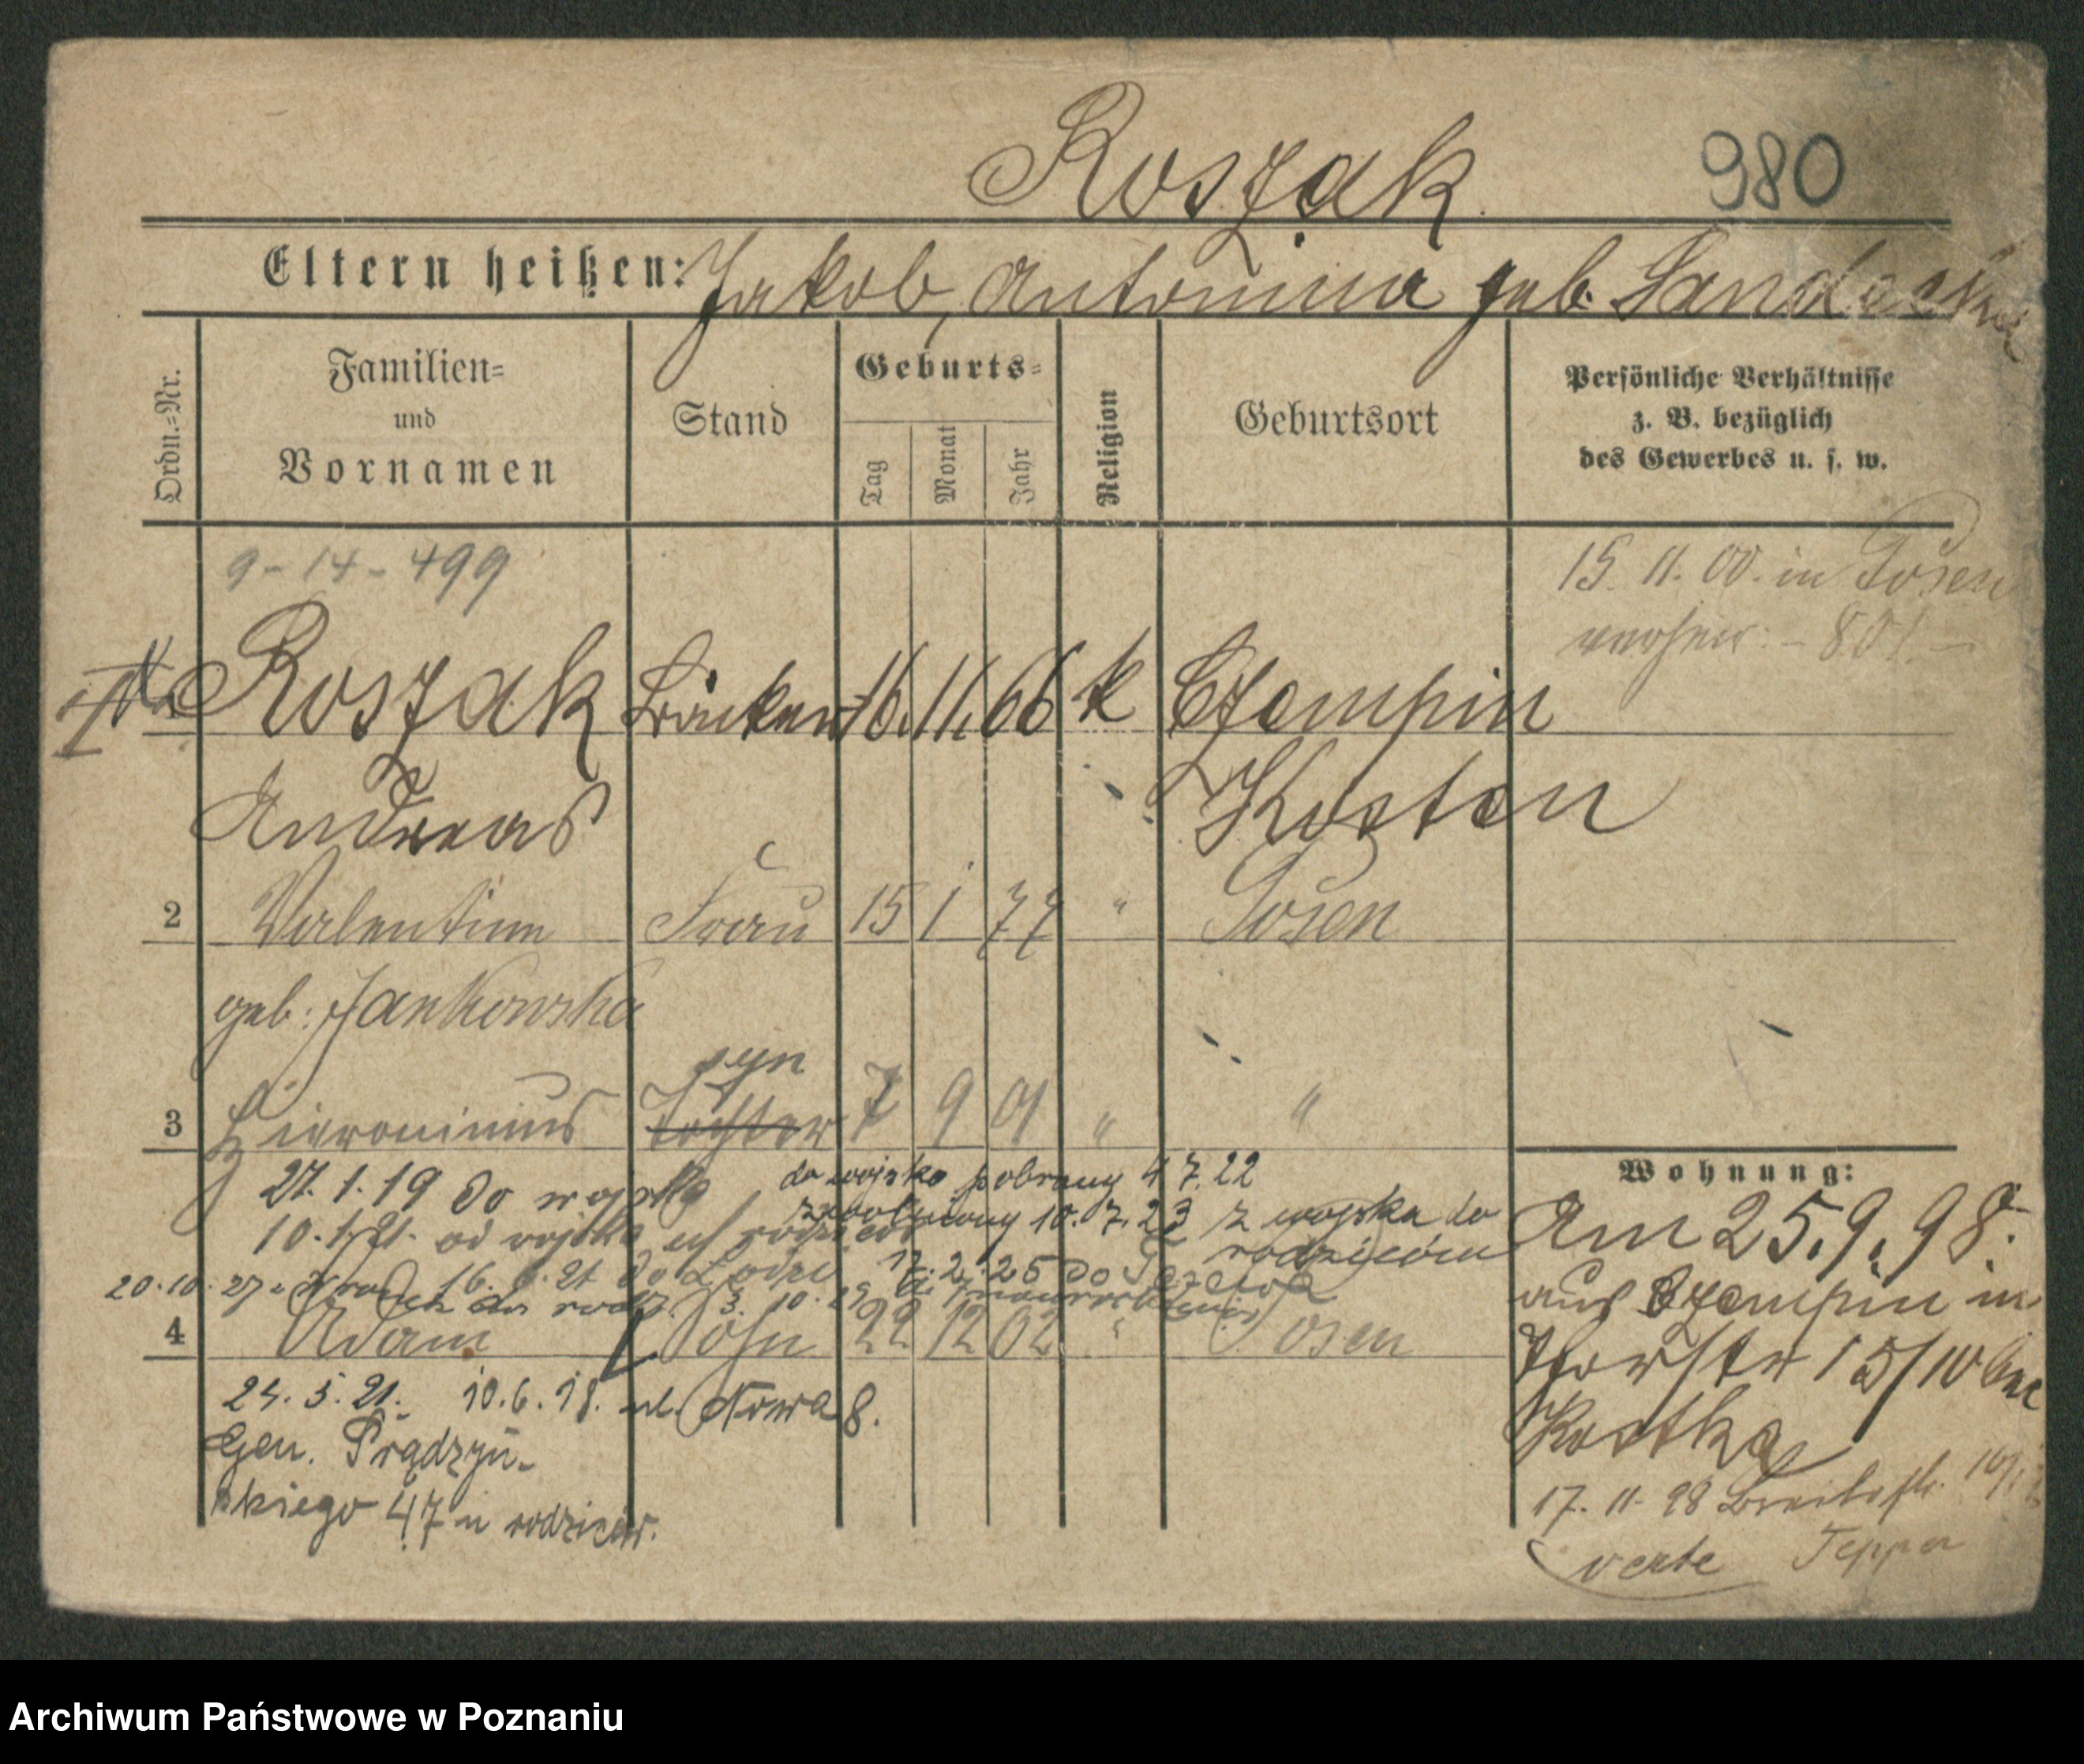 Roszak
980
Eltern heißen: Jakob, Antonina geb.
Ordn.-Nr.
Familien- und Vornamen
Stand
Geburts-
Tag
Monat
Jahr
Religion
Geburtsort
Persönliche Verhältnisse
z. B. bezüglich
des Gewerbes u. s. w.
9-14-499
15. 11. 00. in Posen
verheir. - 801. -
Roszak 16. 11. 66 k Czempin
Andreas Kosten
2 Valentine Frau 15 1 77 " Posen
geb: Jankowska
syn
3 Hieronimus Tochter 7 9 01 " "
27. 1. 19 do wojska
do wojska pobrany 4 7. 22
10. 1. 21. od wojska
zwolniony 10. 7. 23 z wojska do
rodziców
16. 6. 21 do Łodzi
2. 25 do Tczewa
20. 10. 27
3. 10. 29
4 Adam Sohn 22 12 02 " Posen
24. 5. 21. 10. 6. 18. ul. Nowa 8.
Gen. Prądzyń-
skiego 47 u rodziców.
Wohnung:
Am 25. 9. 98.
aus Czempin in
15/10 bei
Kostka
17. 11. 98 Breitestr.
verte Tepper
Archiwum Państwowe w Poznaniu